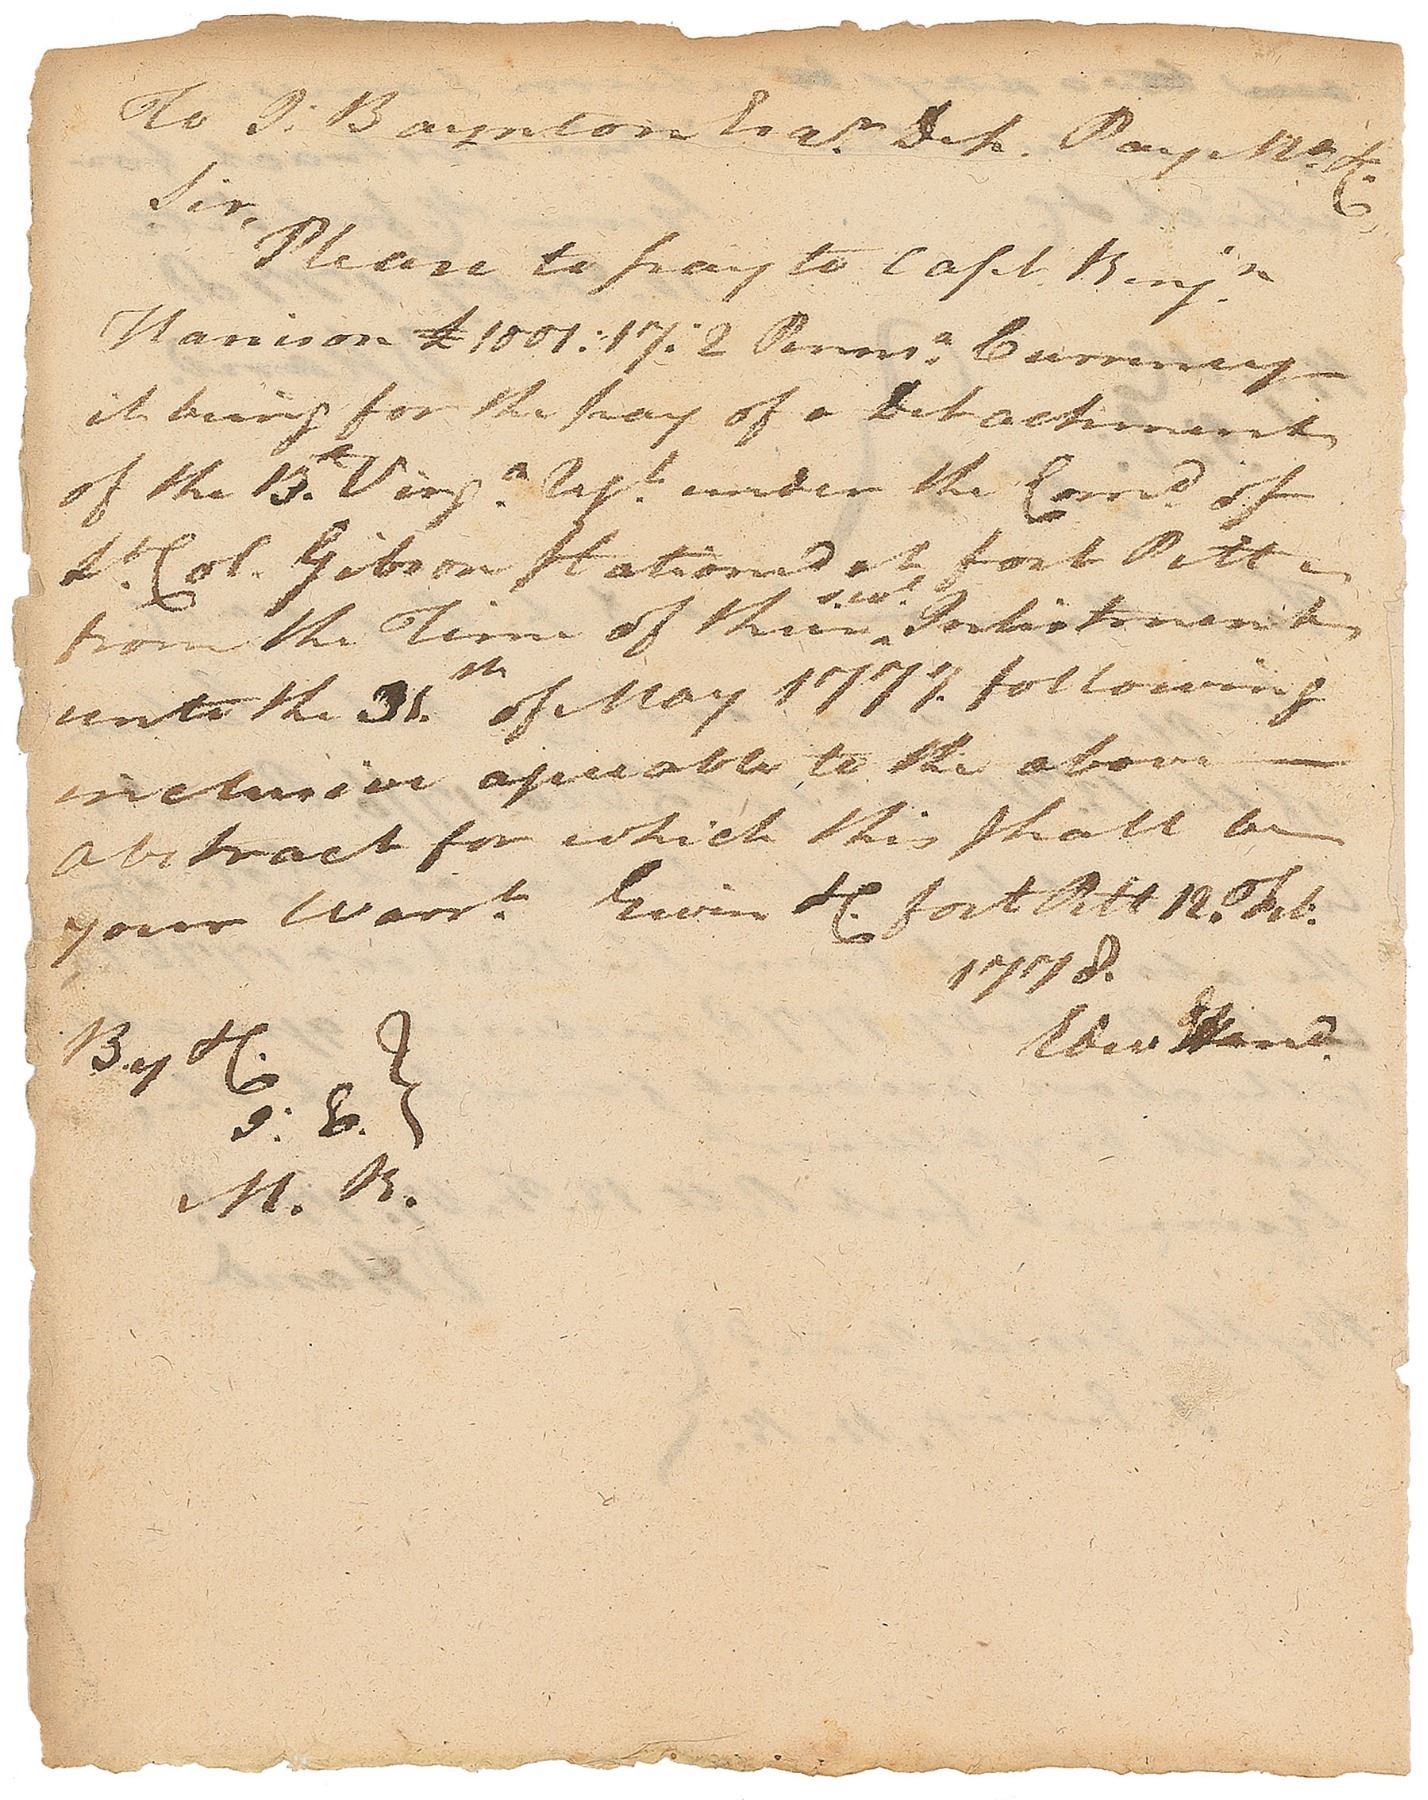 To P: Baynton Esqr. Dep. Pay Mr. &c.
Sir,
Please to pay to Capt. Benjn.
Harrison £1001:17:2 Pennsa. Currency
it being for the pay of a Detachment
of the 13th. Virga. Regt. under the Comd of
Lt. Col. Gibson Stationed at fort Pitt
from the Time of their sevl. Inlistments
unto the 31.th of May 1777. following
inclusive agreeable to the above —
abstract for which this shall be
your Warrt. Given &c. fort Pitt 12.th Feb.
1778.
Edwd. Hand.
By &c.
J: E.
M. B.